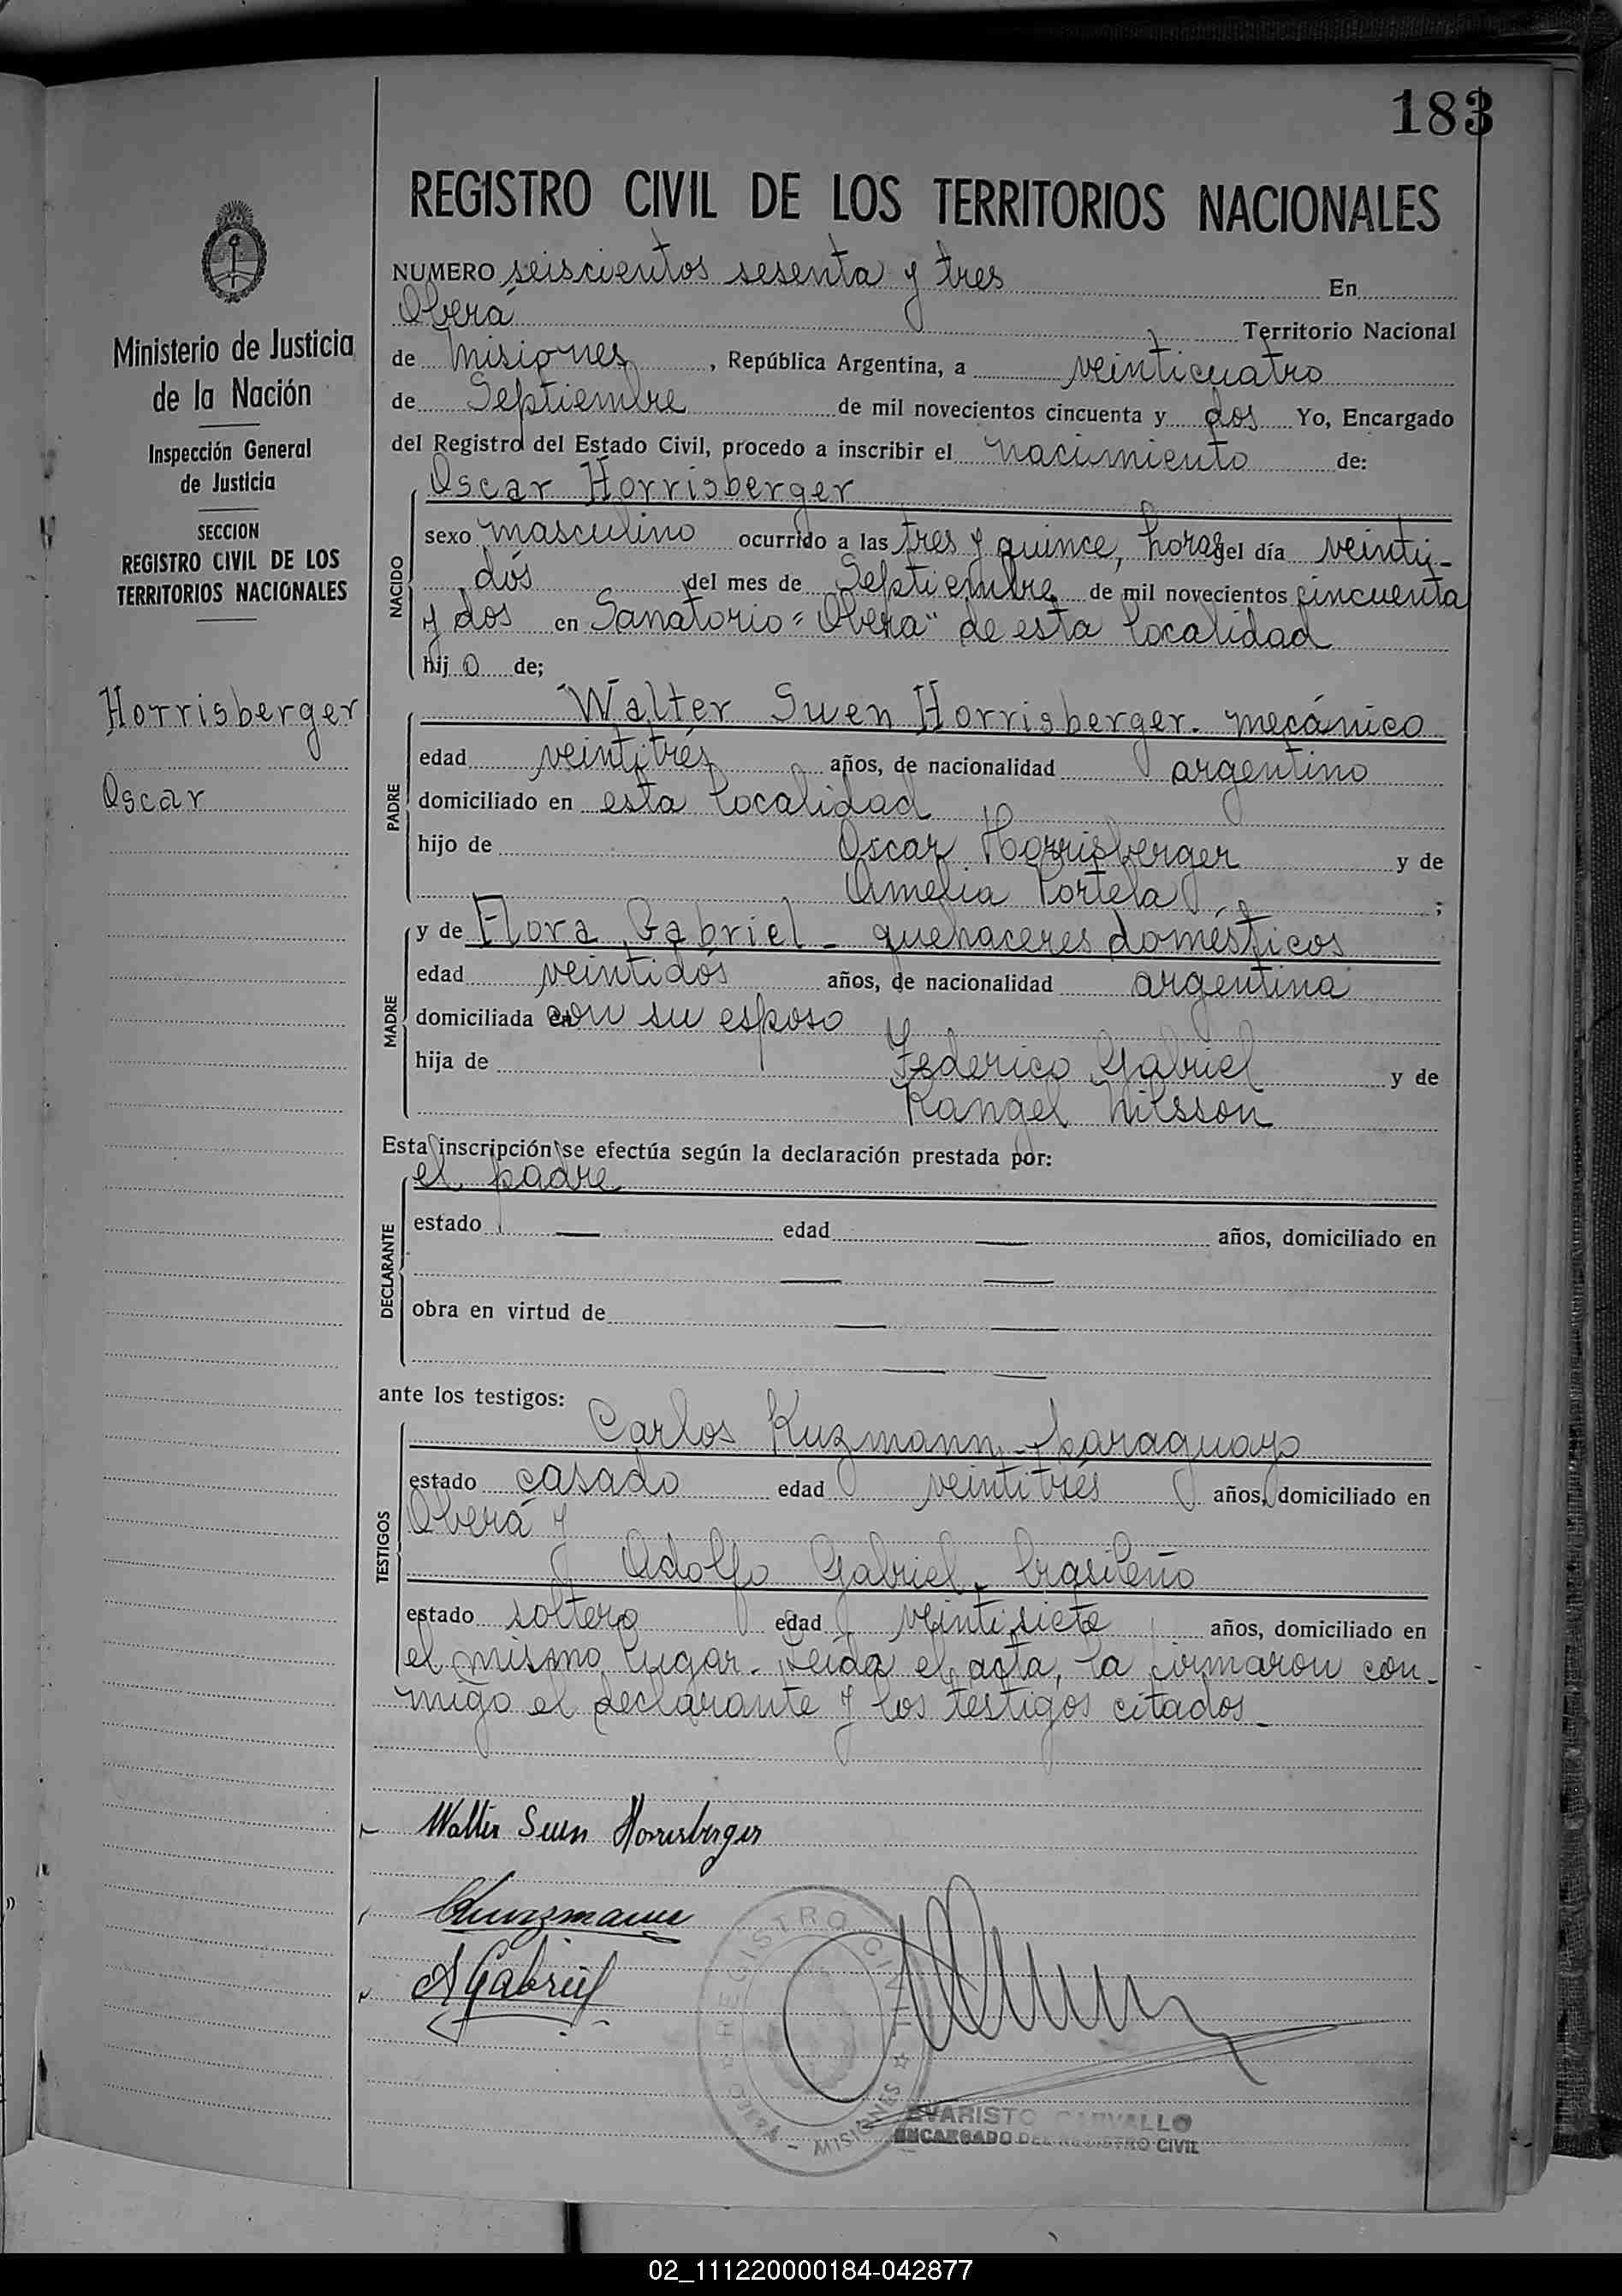 183
REGISTRO CIVIL DE LOS TERRITORIOS NACIONALES
NUMERO seiscientos sesenta y tres En
Oberá Territorio Nacional
de Misiones, República Argentina, a veinticuatro
de Septiembre de mil novecientos cincuenta y dos Yo, Encargado
del Registro del Estado Civil, procedo a inscribir el nacimiento de:
Ministerio de Justicia
de la Nación
Inspección General
de Justicia
SECCION
REGISTRO CIVIL DE LOS
TERRITORIOS NACIONALES
Horrisberger
Oscar
NACIDO
Oscar Horrisberger
sexo masculino ocurrido a las tres y quince, horas del día veinti-
dós del mes de Septiembre de mil novecientos cincuenta
y dos en Sanatorio "Oberá" de esta localidad
hijo de;
PADRE
Walter Suen Horrisberger - mecánico
edad veintitrés años, de nacionalidad argentino
domiciliado en esta localidad
hijo de Oscar Horrisberger y de
Amelia Portela ;
MADRE
y de Flora Gabriel - quehaceres domésticos
edad veintidós años, de nacionalidad argentina
domiciliada en con su esposo
hija de Federico Gabriel y de
Rangel Nilsson
Esta inscripción se efectúa según la declaración prestada por:
DECLARANTE
el padre
estado — edad — años, domiciliado en
— —
obra en virtud de — —
— —
ante los testigos:
TESTIGOS
Carlos Kuzmann - paraguayo
estado casado edad veintitrés años, domiciliado en
Oberá y
Adolfo Gabriel - brasileño
estado soltero edad veintisiete años, domiciliado en
el mismo lugar. Leída el acta, la firmaron con-
migo el declarante y los testigos citados -
Walter Suen Horrisberger
CKunzmann
AGabriel
REGISTRO CIVIL
OBERA - MISIONES
EVARISTO CARVALLO
ENCARGADO DEL REGISTRO CIVIL
02_111220000184-042877